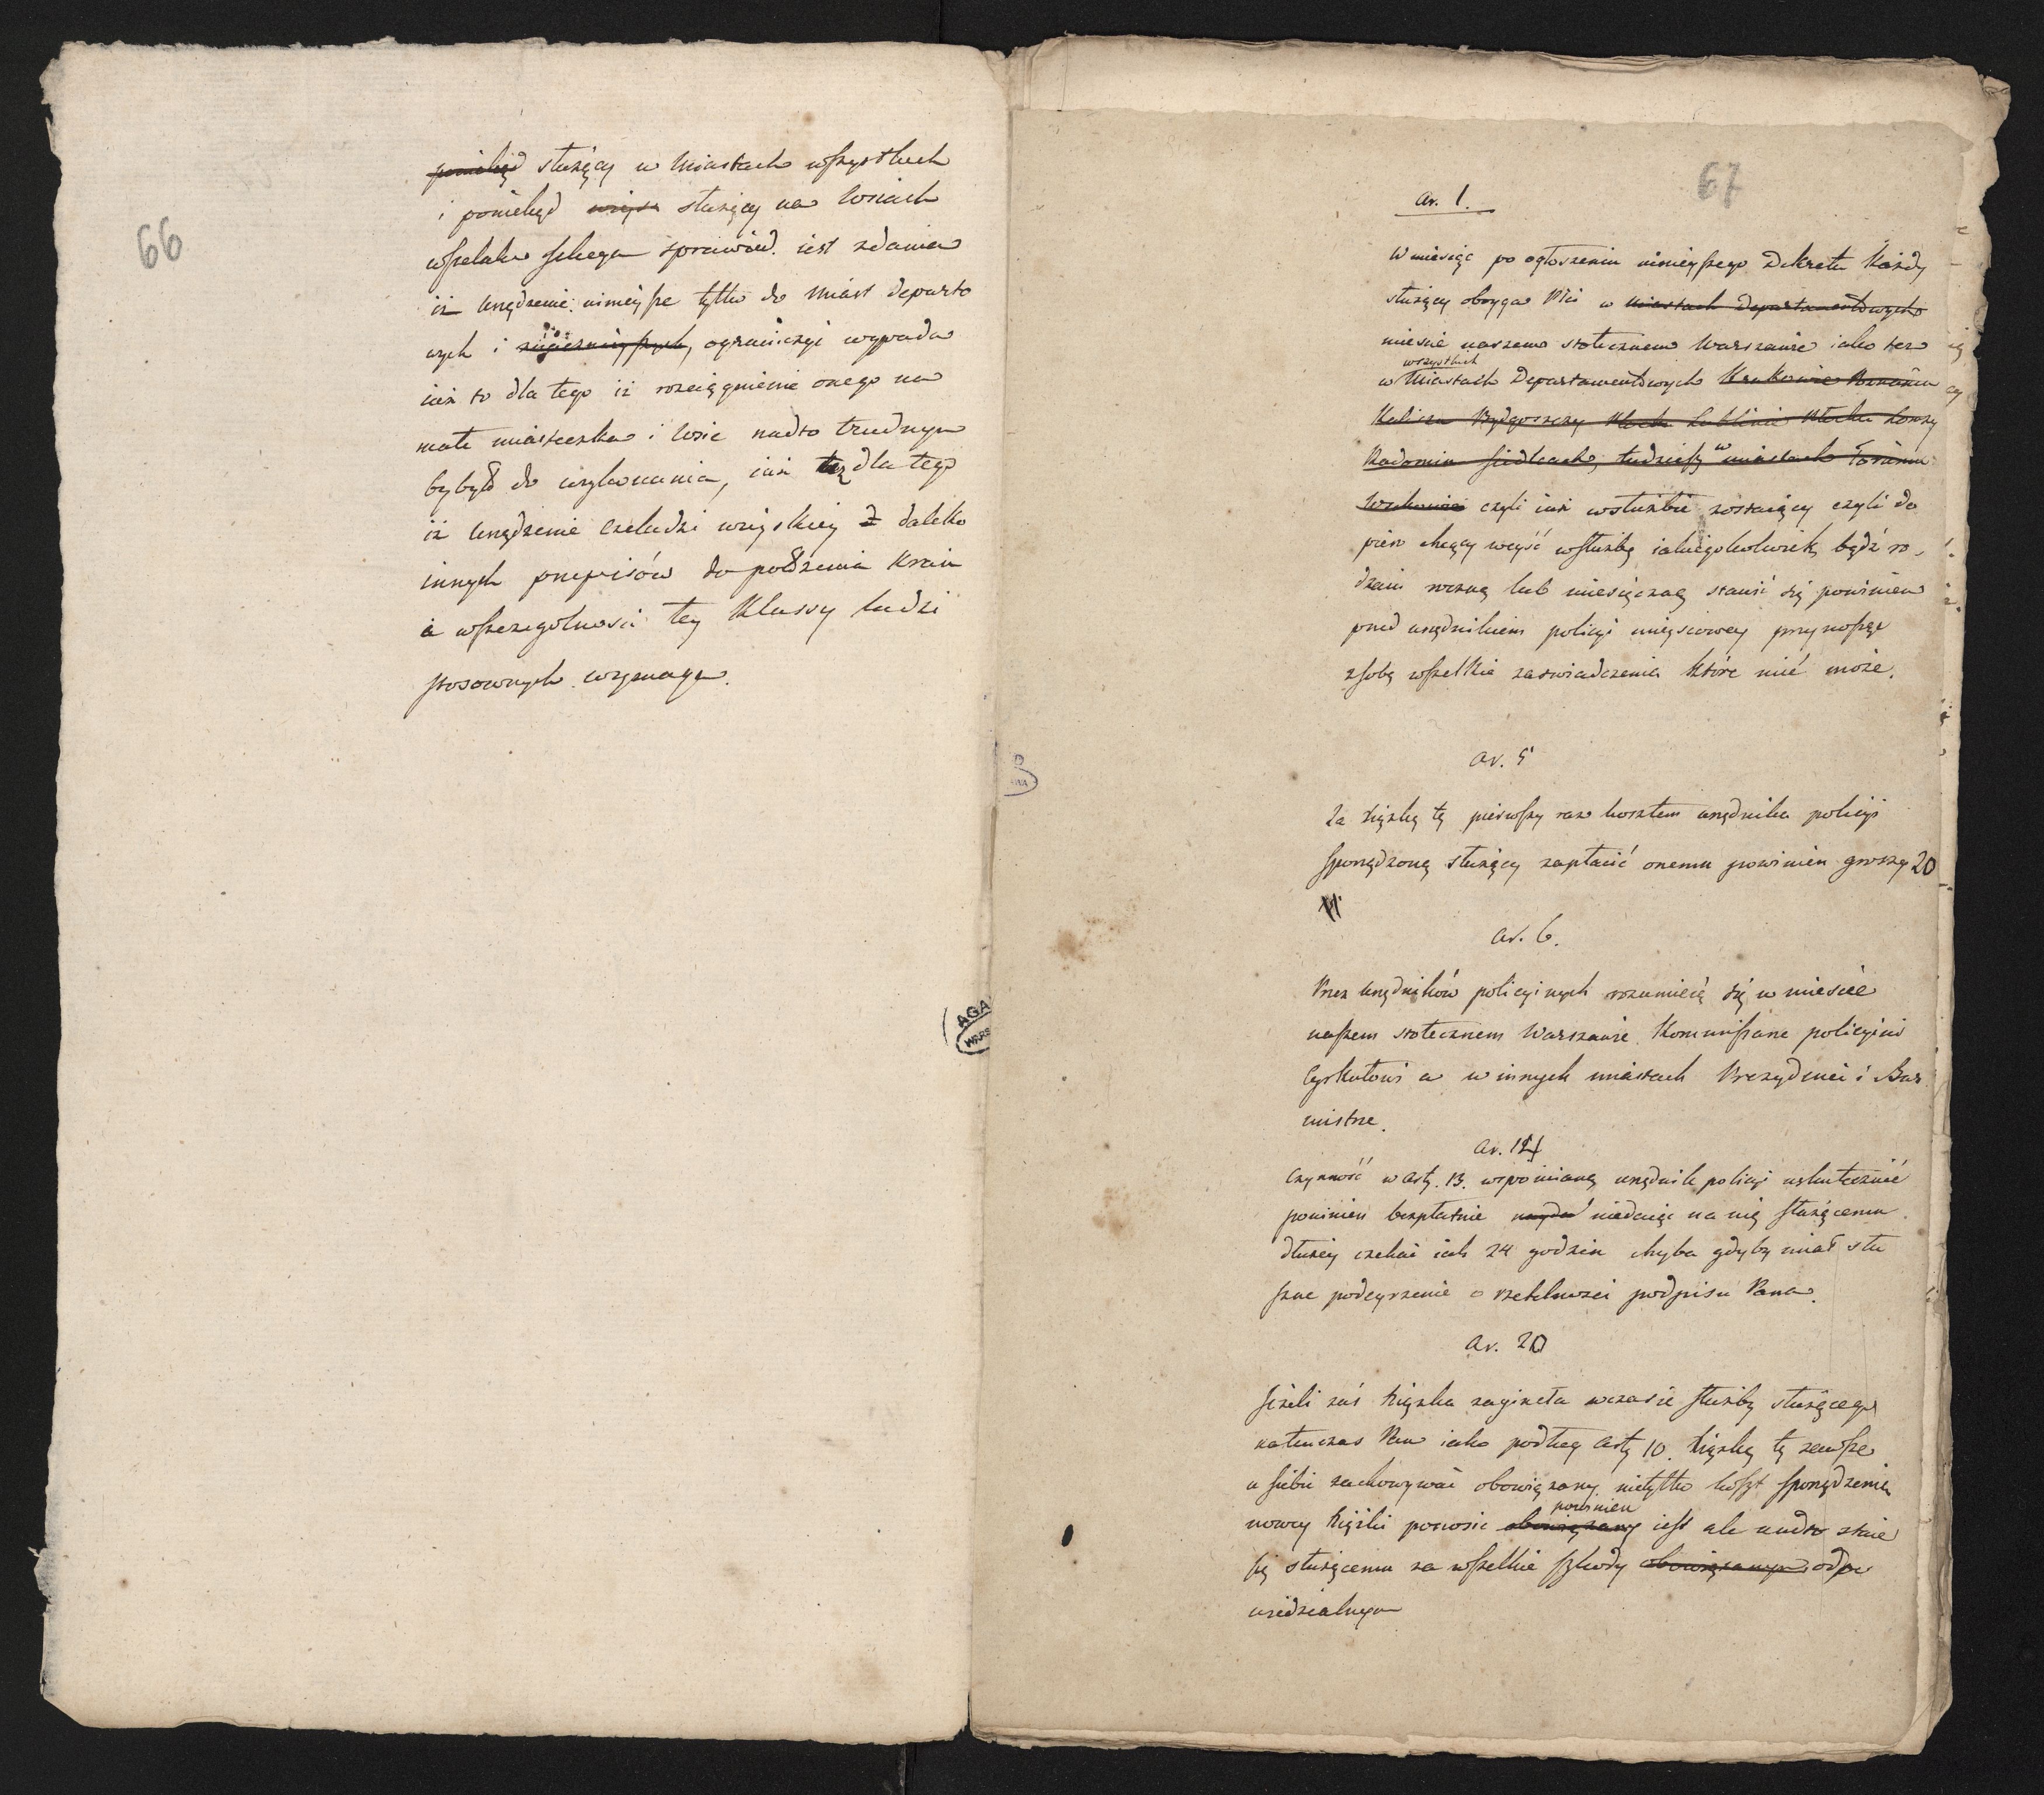 66
poniekąd służący w Miastach wszystkich
i poniekąd wieysc służący na wsiach
wszelako sekcya sprawied. iest zdania
iż urządzenie ninieysze tylko do Miast departo
wych i znacznieyszych, ograniczyć wypada
iuż to dla tego iż rozciągnienie onego na
małe miasteczka i wsie nadto trudnym
byłyby do wykonania, iuż też dla tego
iż urządzenie czeladzi wieyskiey daleko
innych przepisów do położenia kraiu
a wszczegolności tey Klassy ludzi
stosownych wymaga.
67
Ar. 1.
W miesiąc po ogłoszeniu ninieyszego Dekretu Każdy
służący oboyga Płci w miastach Departamentowych
mieście naszem stołecznem Warszawie iako też
wszystkich
w Miastach Departamentowych Krakowie Poznaniu
Kaliszu Bydgoszczy Płock Lublinie Płocku Łomży
Radomiu Siedlcach, tudzież w miastach Toruniu
czyli iuż w służbie zostaiący czyli do
piero chcący weyść w służbę iakieygokolwiek bądź ro
dzaiu roczną lub miesięczną stawić się powinien
przed urzędnikiem policyi mieyscowey przynosząc
z sobą wszelkie zaświadczenia które mieć może.
Ar. 5
Za książkę tę pierwszy raz kosztem urzędnika policyi
sporządzoną służący zapłacić onemu powinien groszy 20
Ar. 6.
Przez Urzędników policyinych rozumieią się w mieście
naszem stołecznem Warszawie Kommissarze policyini
Cyrkułowi a w innych miastach Prezydenci i Bur
mistrze.
Ar. 14
Czynność w Arty. 13. wspomnianą urzędnik policyi uskutecznić
powinien bezpłatnie niedaiąc na nią służącemu
dłużey czekać iak 24 godzin chyba gdyby miał słu
szne podeyrzenie o rzetelności podpisu Pana.
Ar. 20
Jeżeli zaś książka zaginęła w czasie służby służącego
natenczas Pan iako podług Arty 10. książkę tę zawsze
u siebie zachowywać obowiązany nietylko koszt sporządzenia
powinien
nowey książki ponosić obowiązany iest ale nadto staie
się służącemu za wszelkie szkody obowiązanym odpo
wiedzialnym